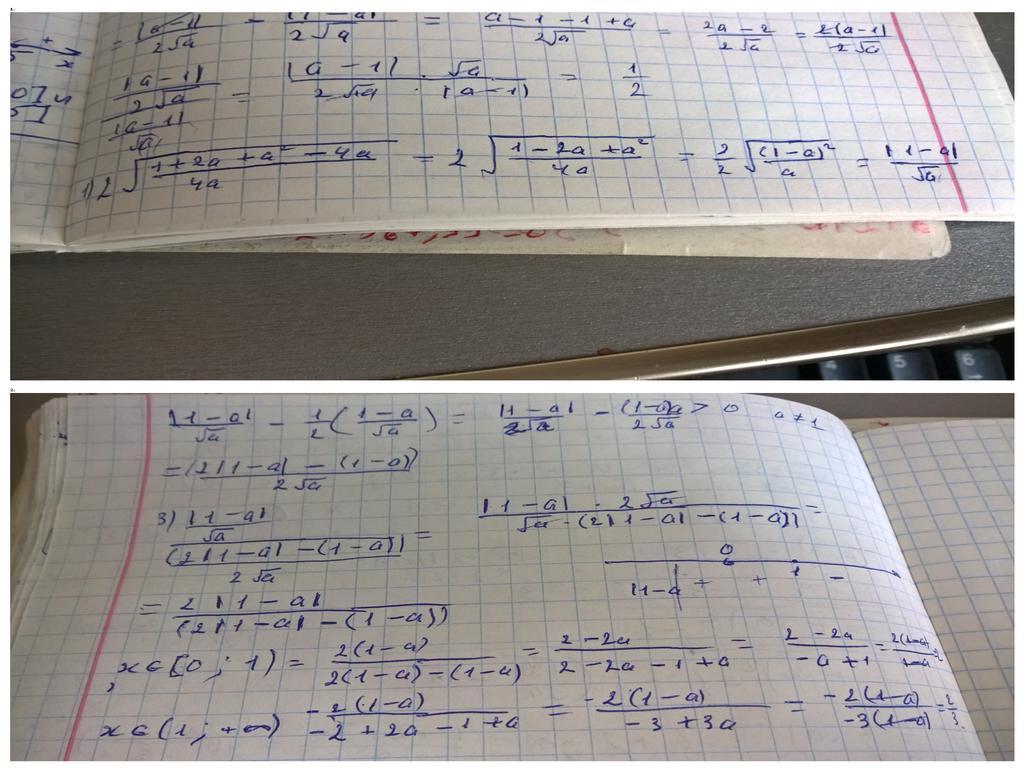 1.
= |a-1|/2√a - (1-a)/2√a = a-1-1+a/2√a = 2a-2/2√a = 2(a-1)/2√a
|a-1|/2√a / |a-1|/√a = |a-1| · √a/2√a · |a-1| = 1/2
1) 2√(1+2a+a²-4a/4a) = 2√(1-2a+a²/4a) = 2/2 √((1-a)²/a) = |1-a|/√a
5
6
2.
|1-a|/√a - 1/2(1-a/√a) = |1-a|/2√a - (1-a)a/2√a > 0 a≠1
= (2|1-a| - (1-a))/2√a
3) |1-a|/√a / (2|1-a| - (1-a))/2√a = |1-a| · 2√a/√a · (2|1-a| - (1-a)) =
0
|1-a| + + 1 -
= 2|1-a|/(2|1-a| - (1-a))
x∈[0; 1) = 2(1-a)/2(1-a)-(1-a) = 2-2a/2-2a-1+a = 2-2a/-a+1 = 2(1-a)/1-a = 2
x∈(1; +∞) -2(1-a)/-2+2a-1+a = -2(1-a)/-3+3a = -2(1-a)/-3(1-a) = 2/3